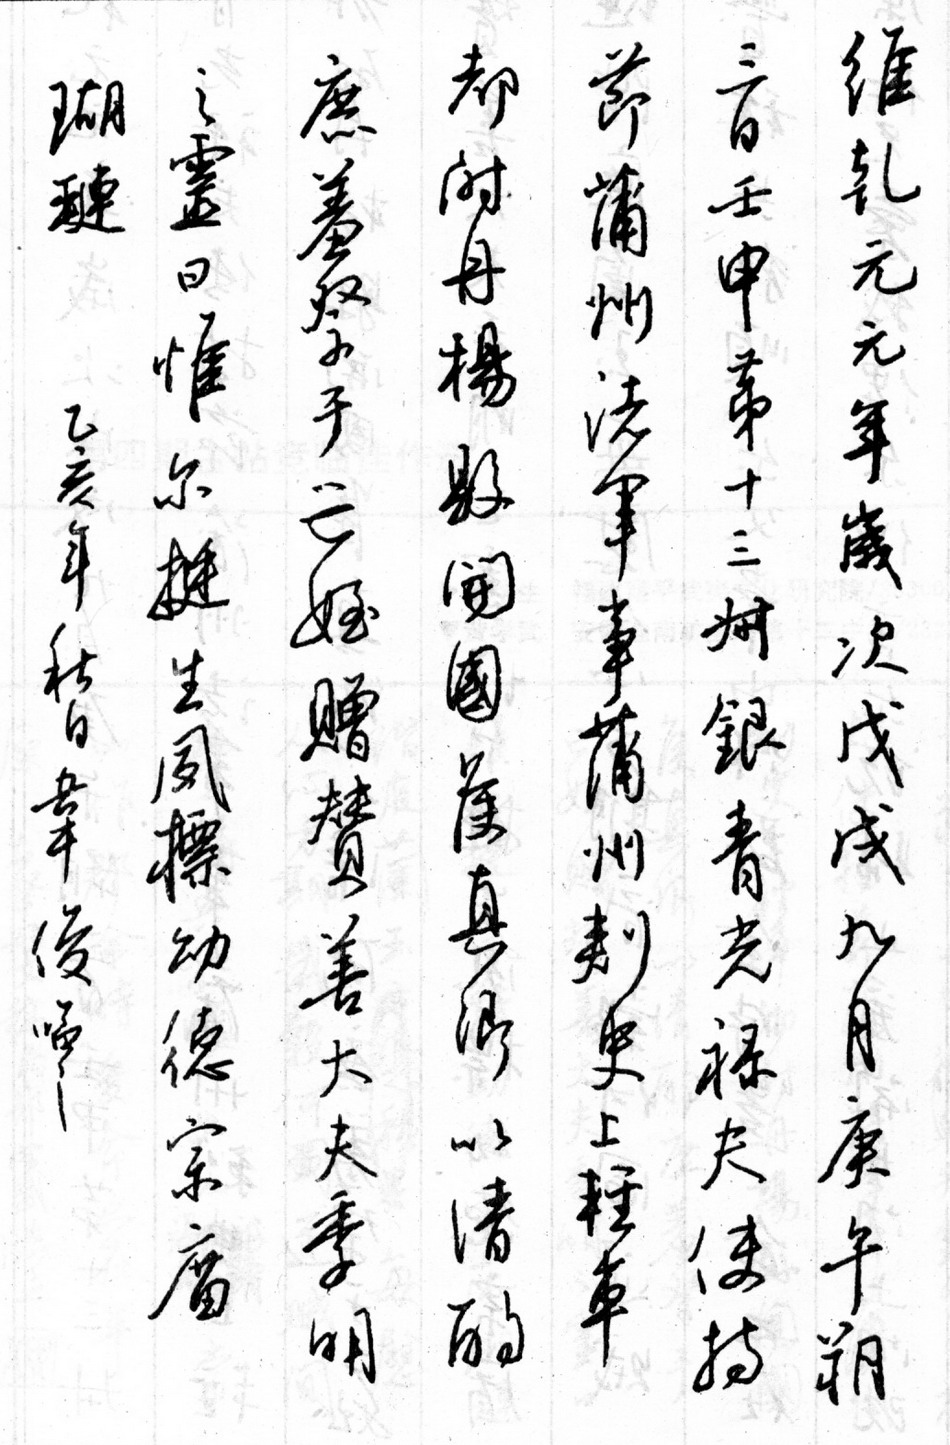 維乾元元年歲次戊戌九月庚午朔
三日壬申第十三叔銀青光禄夫使持
節蒲州諸軍事蒲州刺史上輕車
都尉丹楊縣開國侯真卿以清酌
庶羞祭于亡姪贈贊善大夫季明
之靈曰惟尔挺生夙標幼德宗廟
瑚璉
乙亥年秋日韋俊